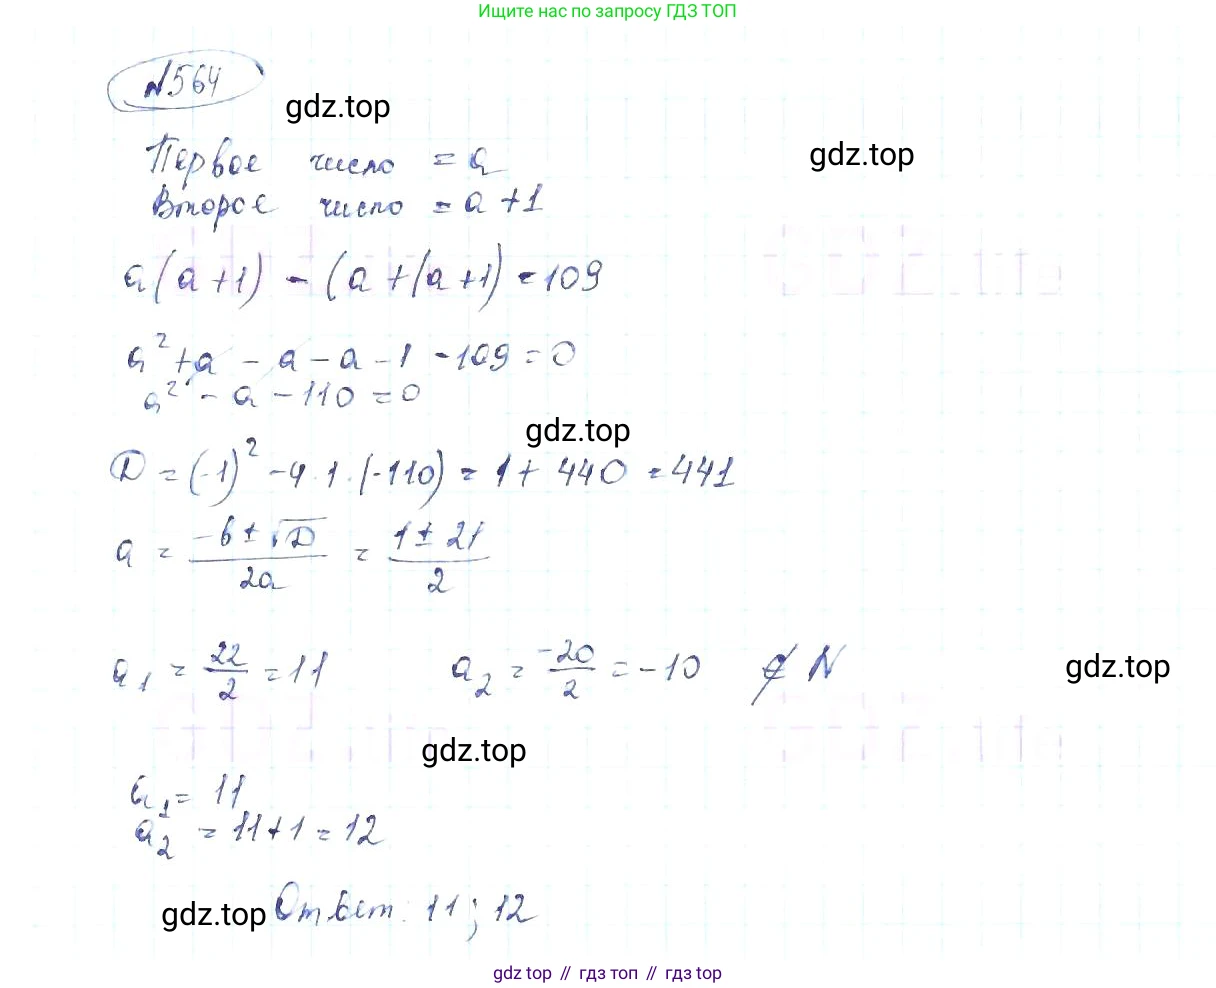 Ищите нас по запросу ГДЗ ТОП
№564
gdz.top
Первое число = a
gdz.top
Второе число = a + 1
a(a+1) - (a+(a+1) = 109
a² + a - a - a - 1 - 109 = 0
a² - a - 110 = 0
gdz.top
D = (-1)² - 4 · 1 · (-110) = 1 + 440 = 441
a = (-b ± √D)/(2a) = (1 ± 21)/2
a₁ = 22/2 = 11 a₂ = -20/2 = -10 ∉ N
gdz.top
gdz.top
a₁ = 11
a₂ = 11+1 = 12
gdz.top Ответ: 11; 12
gdz top // гдз топ // гдз top